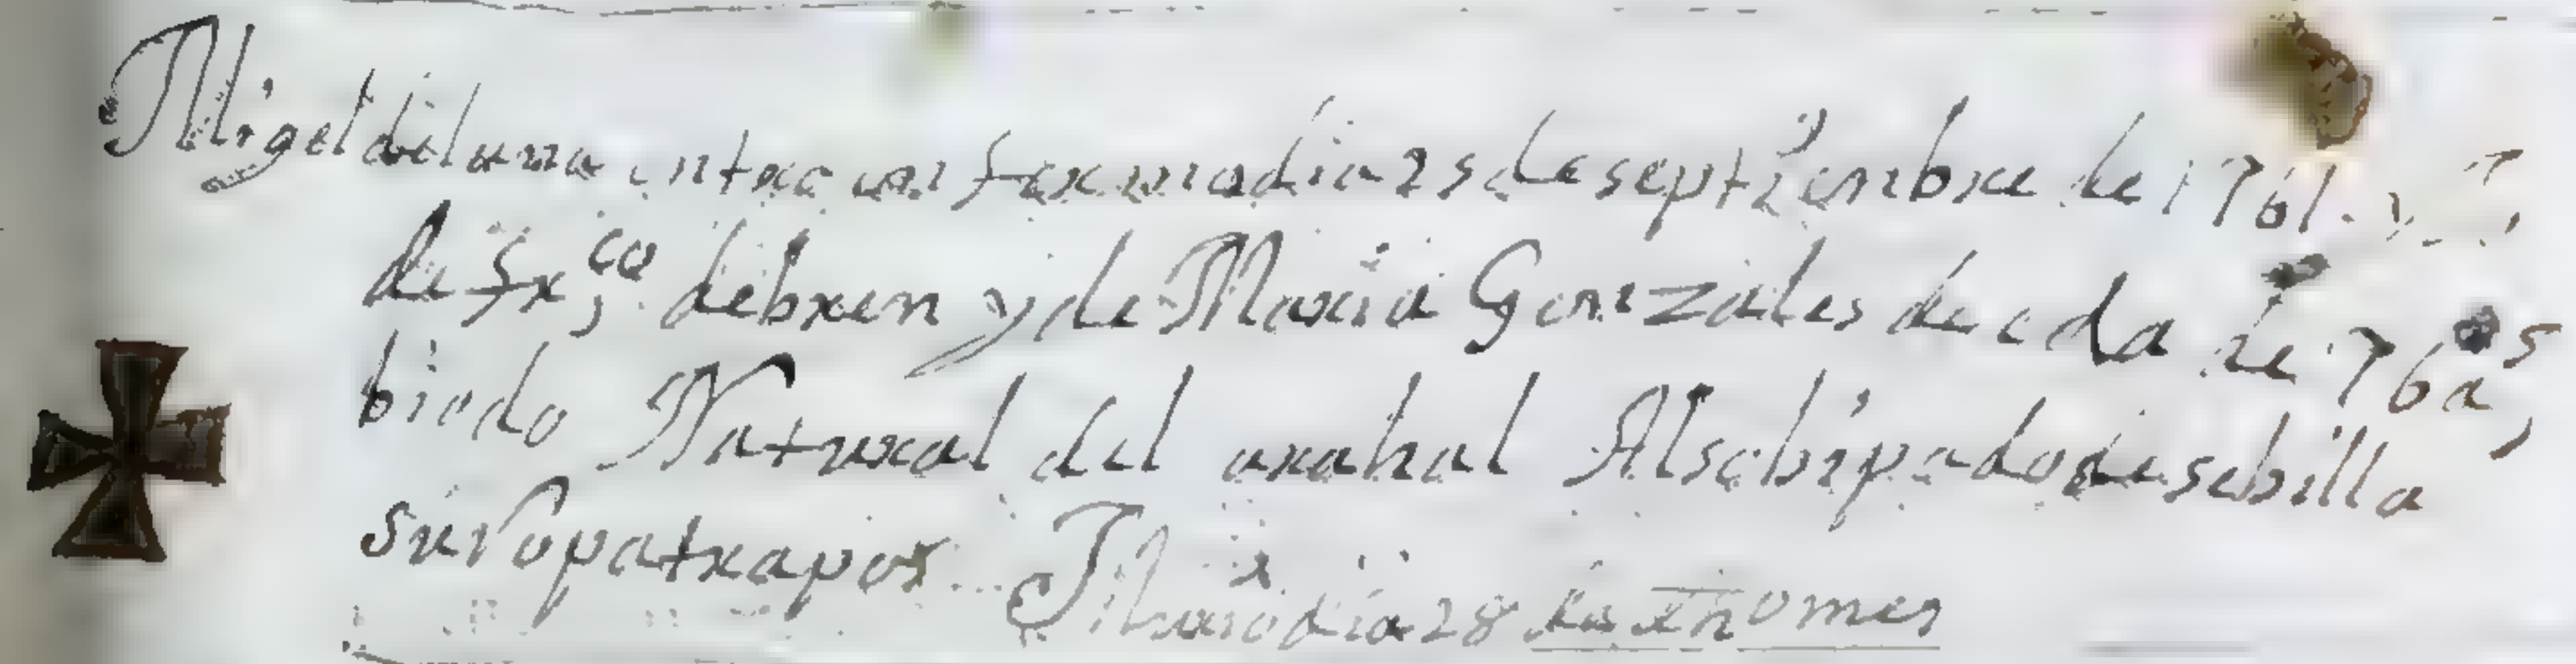 Migel deluna entro en fermo dia 25 de septienbre de 1761
de frco, debren y de Maria Gonzales de eda de 76 as
biudo Natural del arahal Alsobispado de sebilla
su Ropa trapos Murio dia 28 de dho mes